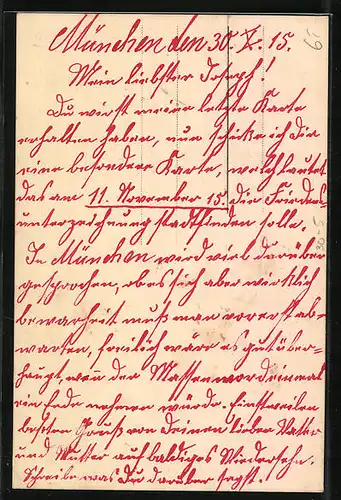 München den 30. X. 15.
Mein liebster Joseph!
Du wirst meine letzte Karte
erhalten haben, nun schicke ich Dir
eine besondere Karte, welch lautet
das am 11. November 15. die Friedens-
unterzeichnung stattfinden solle.
In München wird viel darüber
gesprochen, ob es sich aber wirklich
bewarheit muß man vorerst ab-
warten, freilich wäre es gut über-
haupt, wen der Massenmord einmal
ein Ende nehmen würde. Einstweilen
besten Gruß von Deinem lieben Vatter
und Mutter auf baldiges Wiedersehn.
Schreibe was Du darüber sagst.!